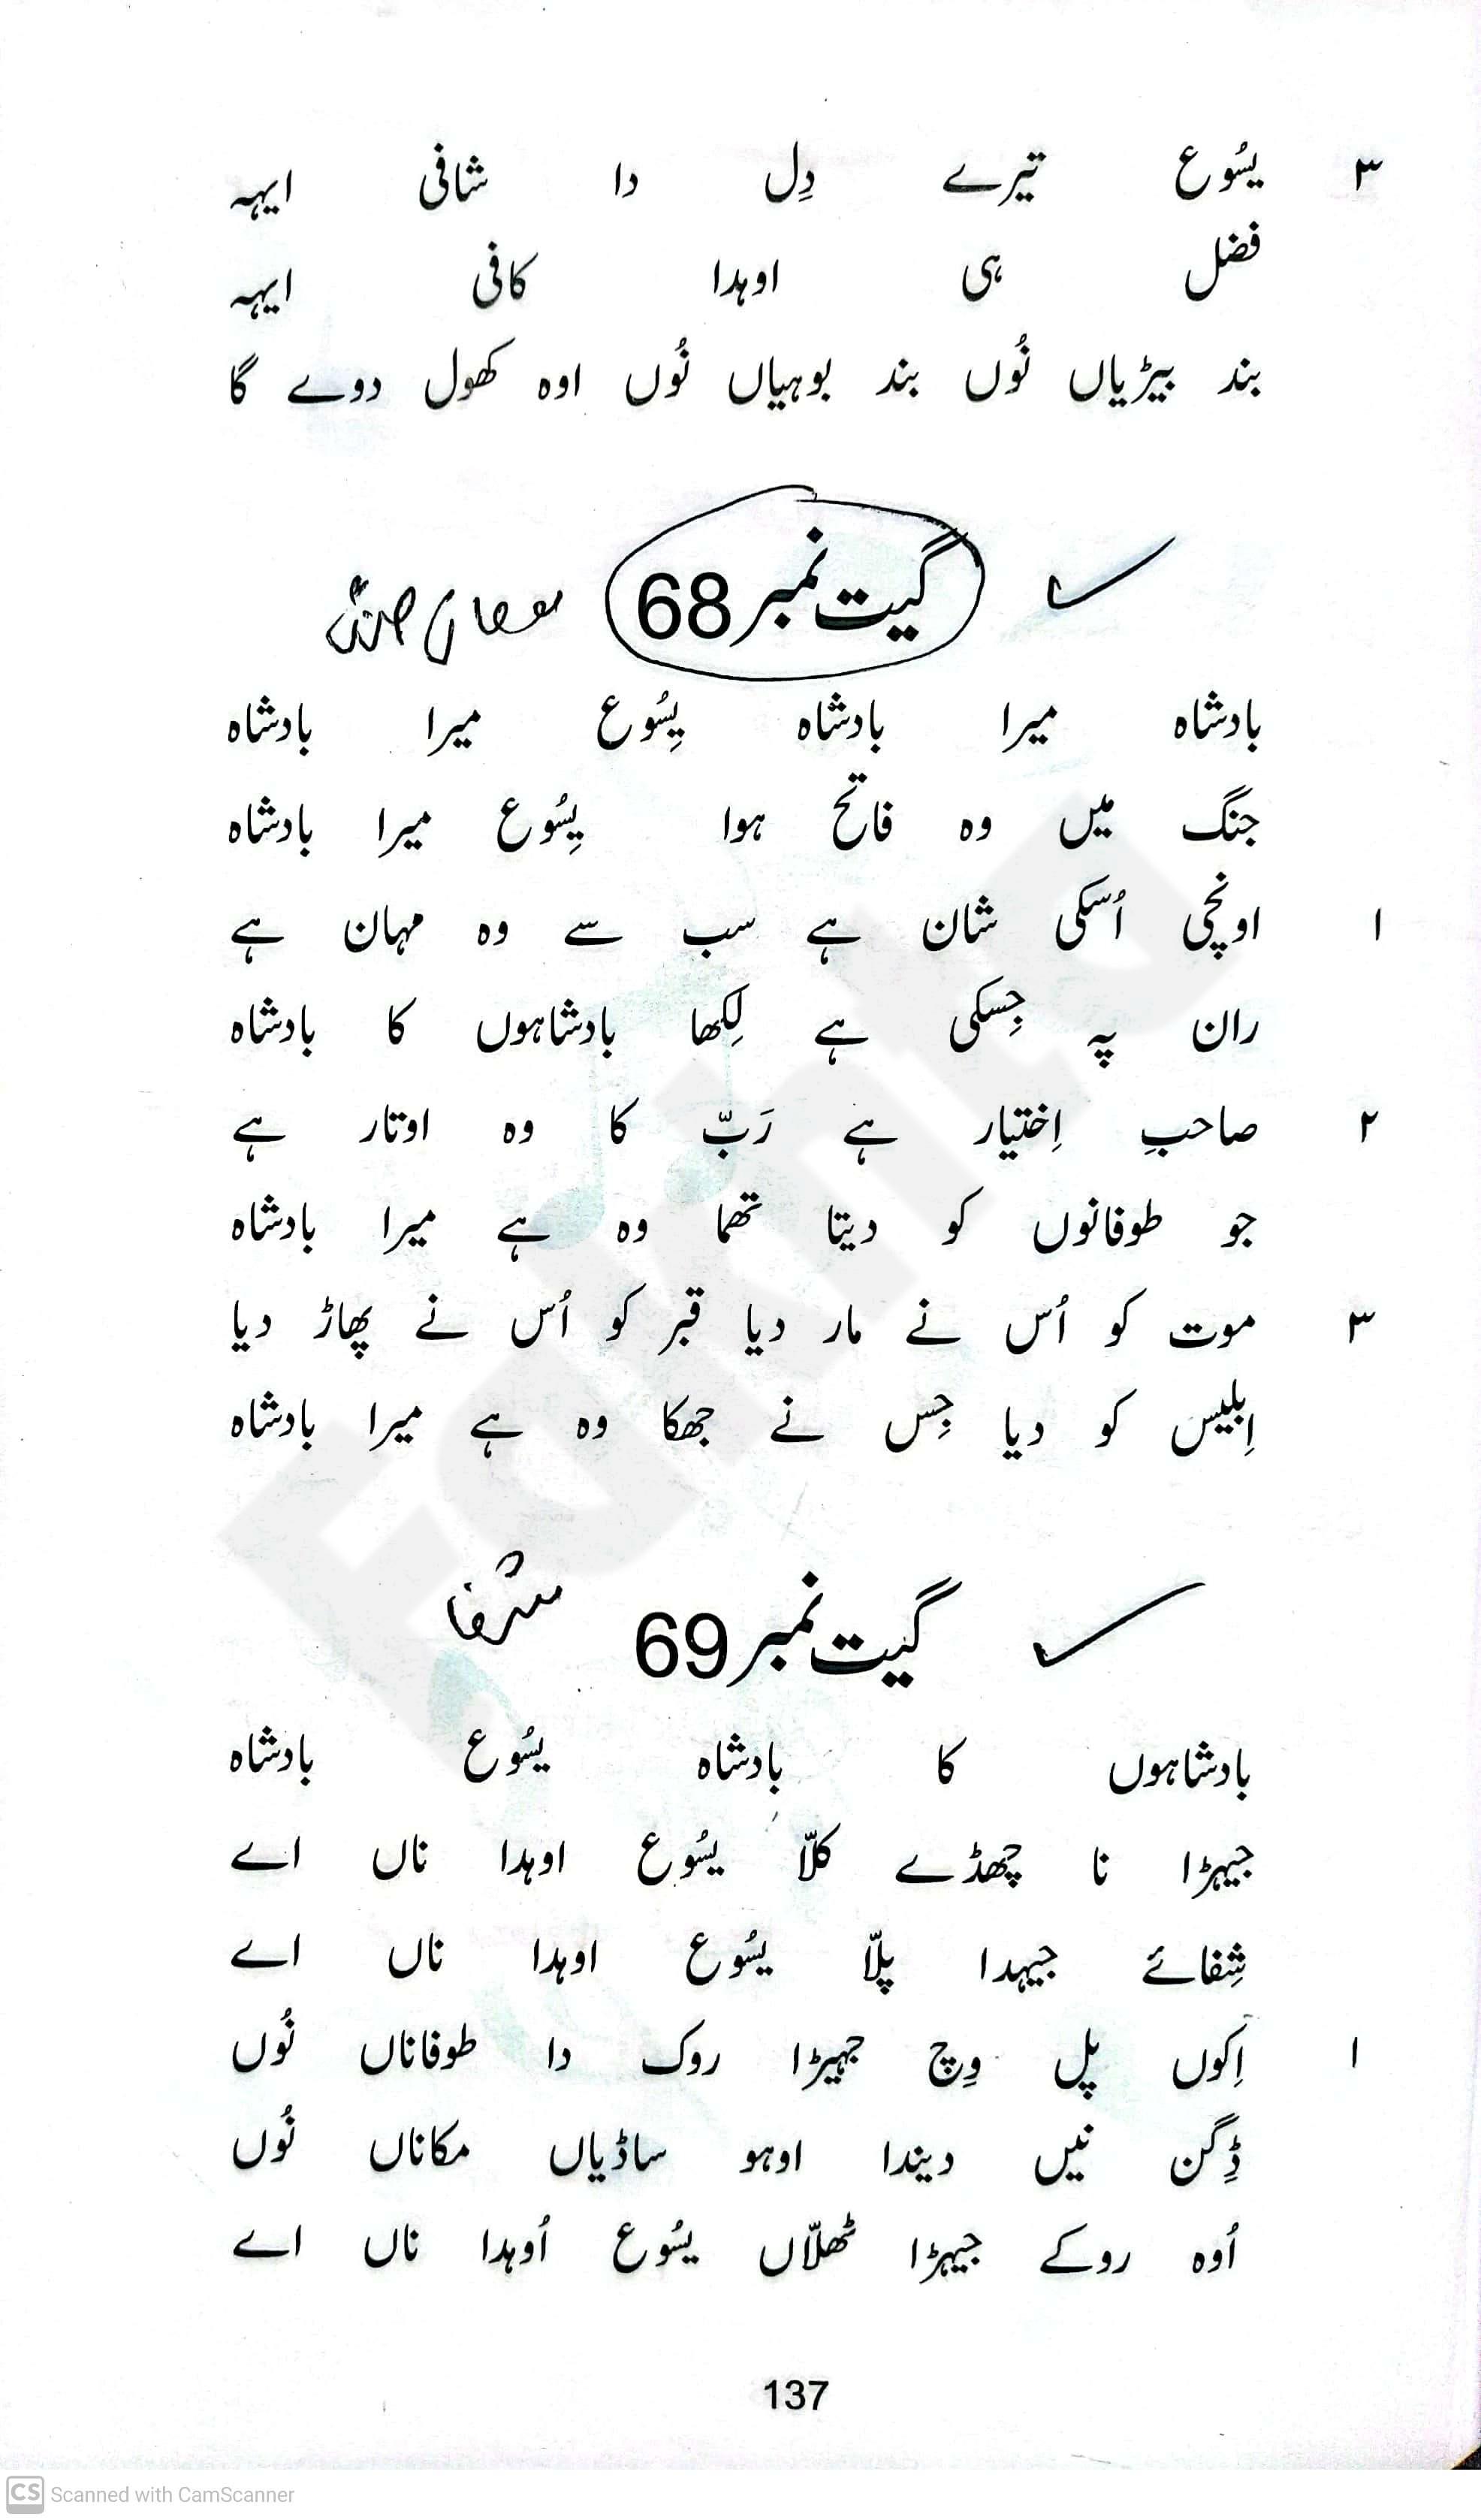 ۳ یسُوع تیرے دِل دا شافی ایہہ
فضل ہی اوہدا کافی ایہہ
بند بیڑیاں نُوں بند بوہیاں نُوں اوہ کھول دوے گا
گیت نمبر 68
بادشاہ میرا بادشاہ یِسُوع میرا بادشاہ
جنگ میں وہ فاتح ہوا یِسُوع میرا بادشاہ
۱ اونچی اُسکی شان ہے سب سے وہ مہان ہے
ران پہ جِسکی ہے لِکھا بادشاہوں کا بادشاہ
۲ صاحبِ اِختیار ہے رَبّ کا وہ اوتار ہے
جو طوفانوں کو دیتا تھما وہ ہے میرا بادشاہ
۳ موت کو اُس نے مار دیا قبر کو اُس نے پھاڑ دیا
اِبلیس کو دیا جِس نے جھکا وہ ہے میرا بادشاہ
گیت نمبر 69
بادشاہوں کا بادشاہ یسُوع بادشاہ
جیہڑا نا چھڈے کلّا یسُوع اوہدا ناں اے
شِفائے جیہدا پلّا یسُوع اوہدا ناں اے
۱ اِکوں پل وِچ جہیڑا روک دا طوفاناں نُوں
ڈِگن نیں دیندا اوہو ساڈیاں مکاناں نُوں
اُوہ روکے جیہڑا ٹھلّاں یسُوع اُوہدا ناں اے
137
CS Scanned with CamScanner
Fakhta